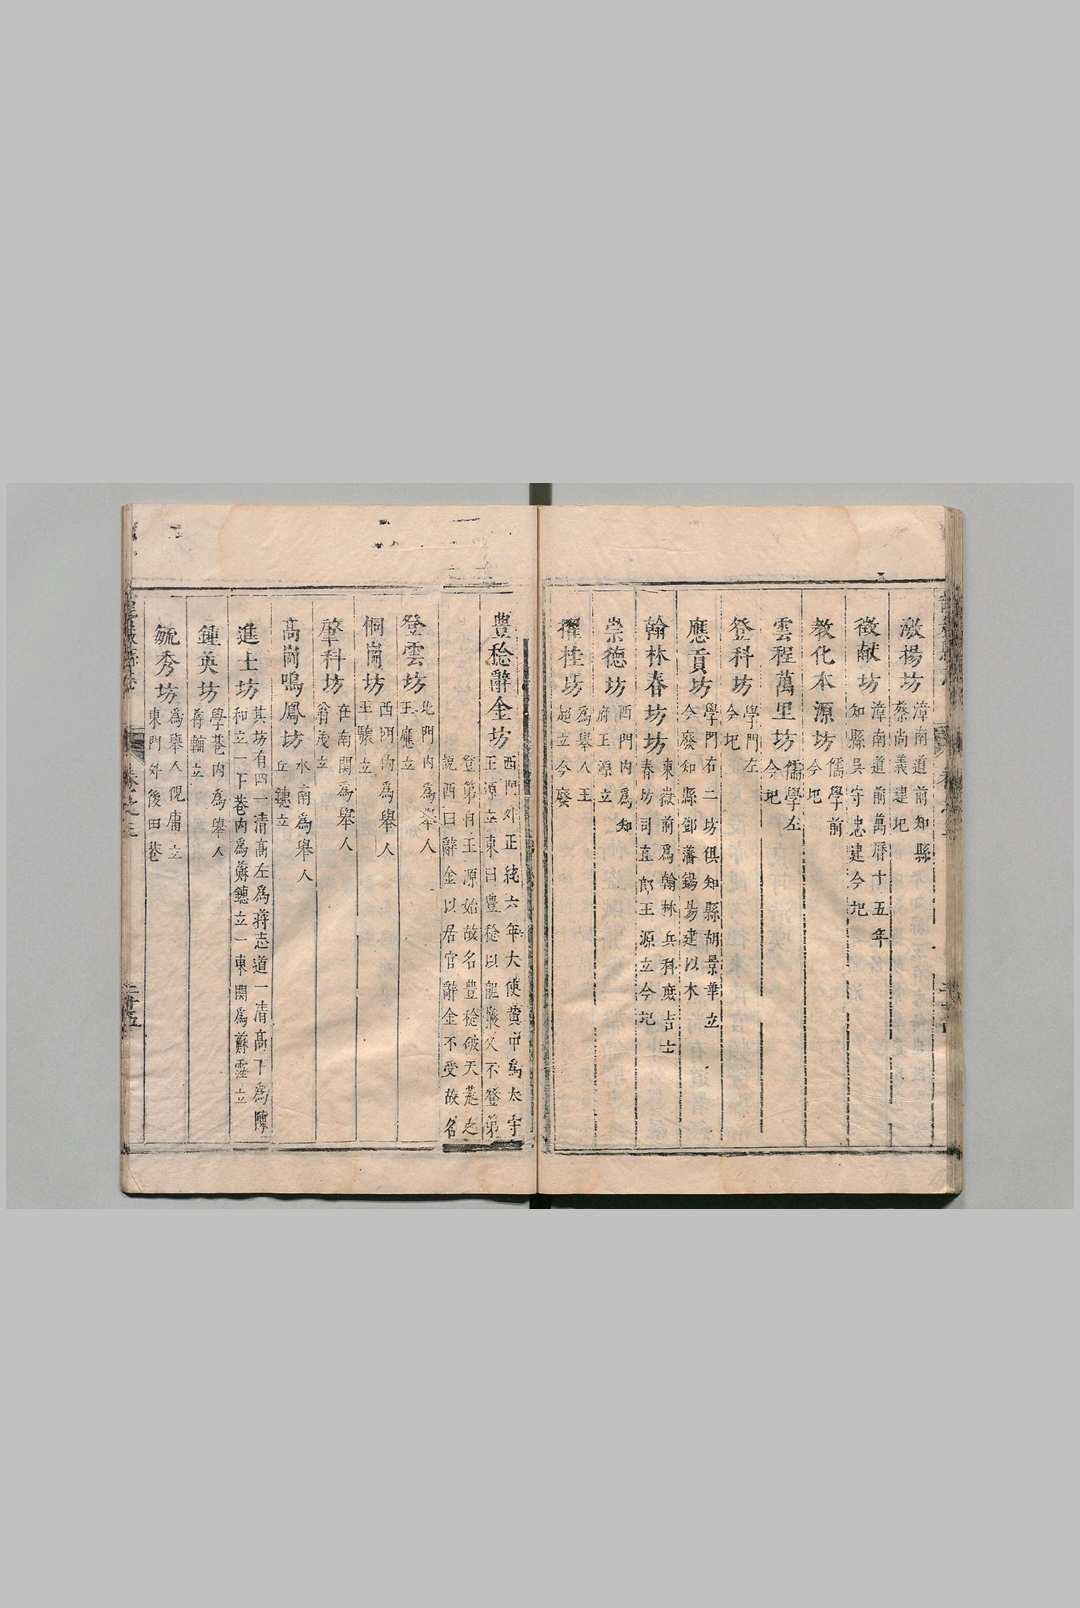 激揚坊漳南道前知縣
蔡尚義建圮
徵献坊漳南道前萬曆十五年
知縣吳守忠建今圮
教化本源坊儒學前
今圮
雲程萬里坊儒學左
今圮
登科坊學門左
今圮
應貢坊學門右二坊俱知縣胡景華立
今廢知縣鄧藩錫易建以木
翰林春坊坊東嶽前爲翰林兵科庶吉士
春坊司直郎王源立今圮
崇德坊西門內爲知
府王源立
擢桂坊爲舉人王
超立今廢
豊稔辭金坊西門外正統六年大使黄中爲太守
王源立東曰豊稔以龍巖久不登第
登第自王源始故名豊稔破天荒之
說西曰辭金以居官辭金不受故名
登雲坊北門內爲舉人
王應立
桐崗坊西門內爲舉人
王驥立
肇科坊在南関爲舉人
翁茂立
高崗鳴鳳坊水南爲舉人
丘鏈立
進士坊其坊有四一清高左爲蔣志道一清高下爲陳
和立一下巷內爲蘇鏸立一東関爲蘇霔立
鍾英坊學巷內爲舉人
蔣輪立
毓秀坊爲舉人倪庸立
東門外後田巷
卷之三
二十五